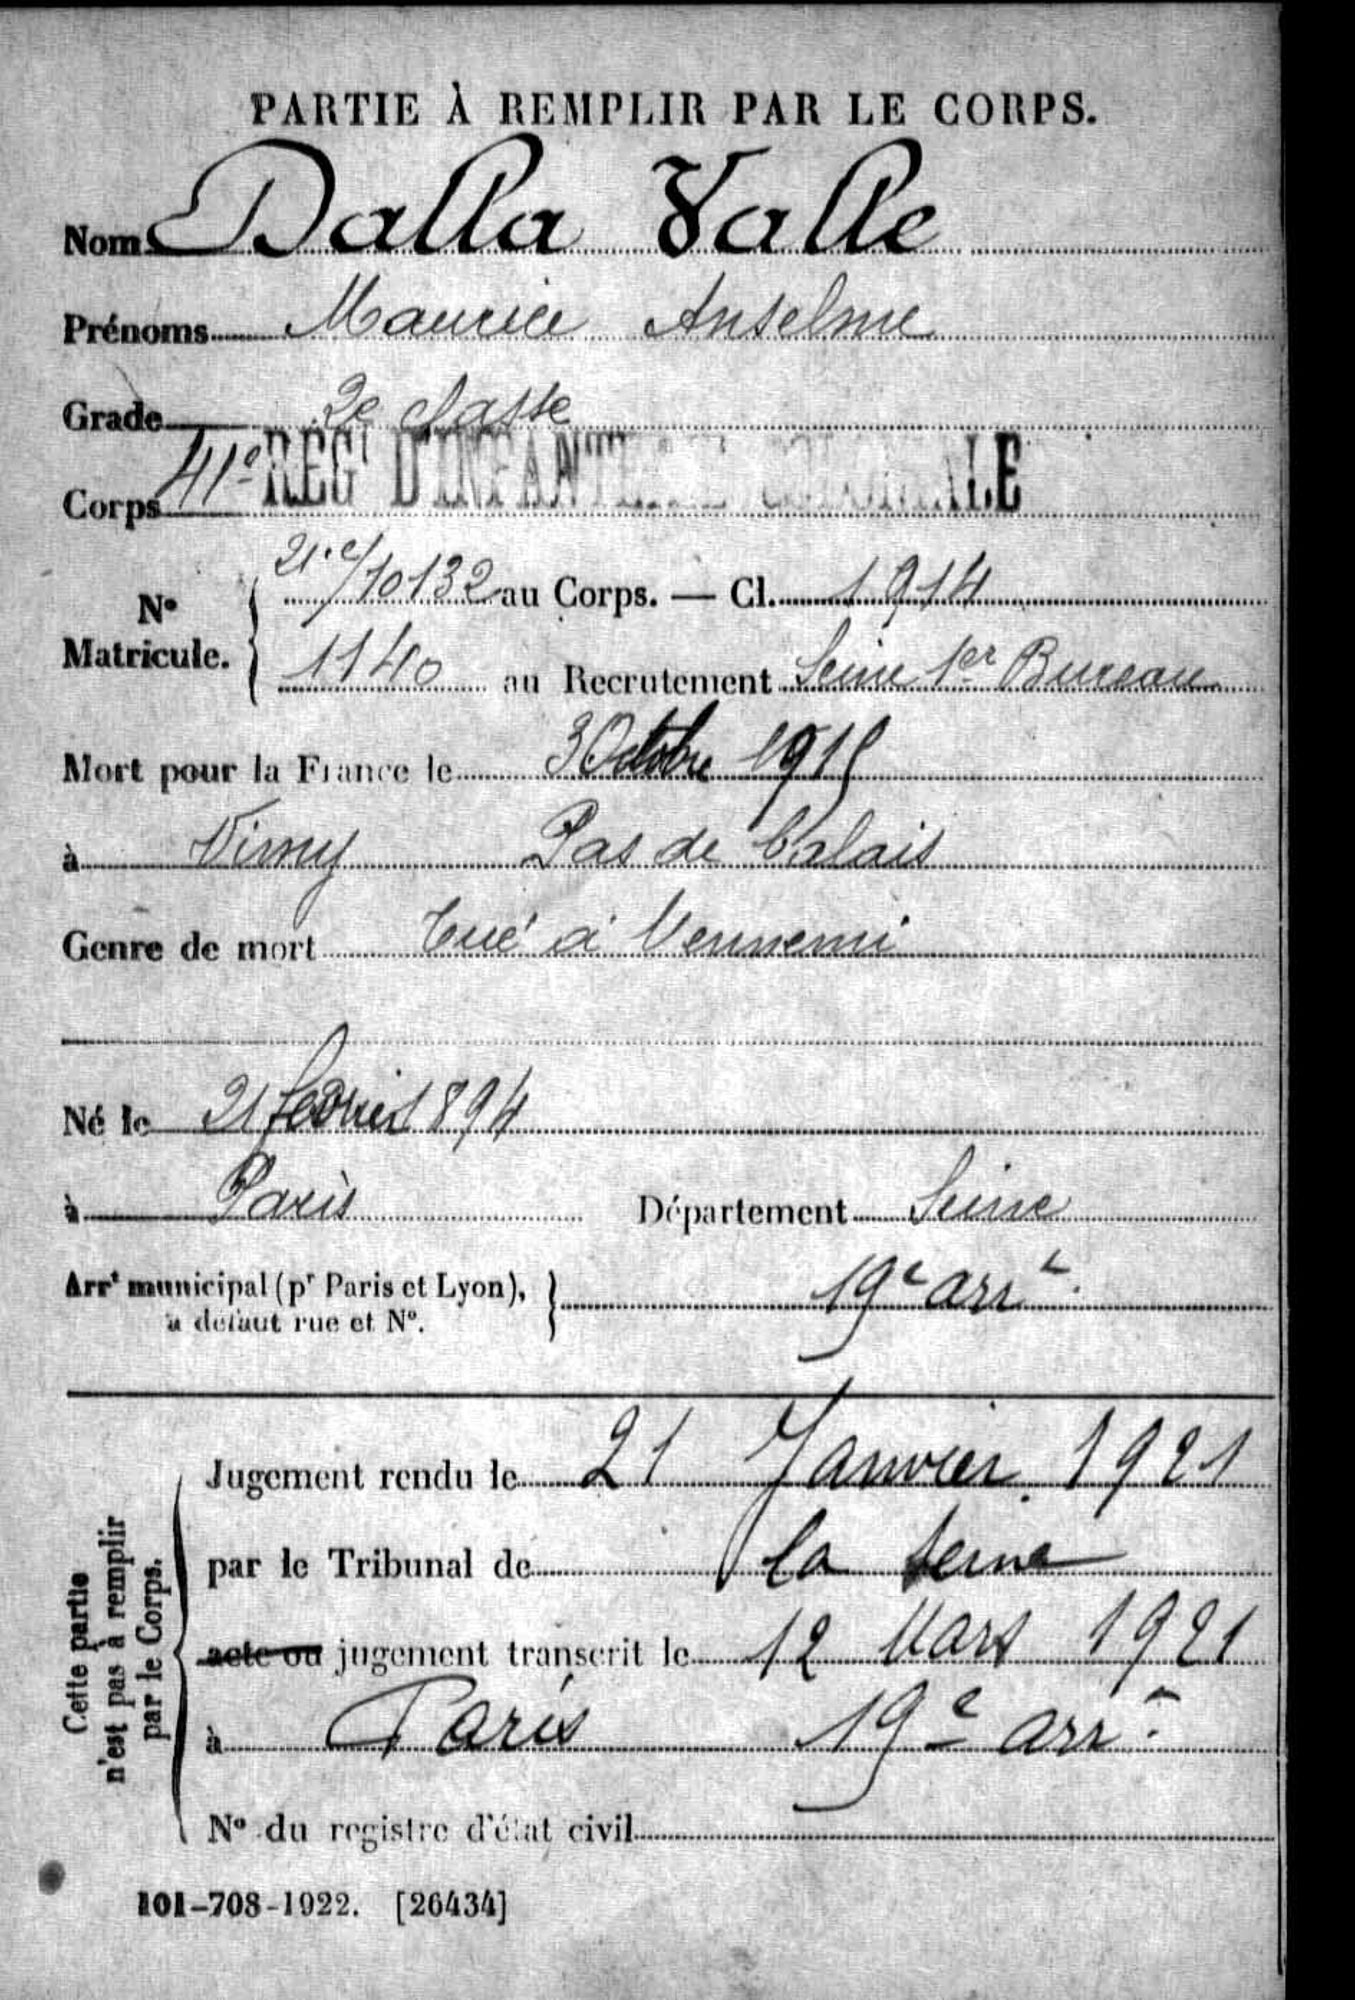 PARTIE À REMPLIR PAR LE CORPS.
Nom Dalla Valle
Prénoms Maurice Anselme
Grade 2e classe
Corps 41e REGt D'INFANTERIE COLONIALE
No Matricule. 21.e/10132 au Corps. — Cl. 1914
1140 au Recrutement Seine 1er Bureau
Mort pour la France le 3 Octobre 1915
à Vimy Pas de Calais
Genre de mort Tué à l'ennemi
Né le 21 février 1894
à Paris Département Seine
Arrt municipal (pr Paris et Lyon), à défaut rue et No. 19e arrt.
Cette partie n'est pas à remplir par le Corps.
Jugement rendu le 21 Janvier 1921
par le Tribunal de la Seine
acte ou jugement transcrit le 12 Mars 1921
à Paris 19e arrt
No du registre d'état civil
101-708-1922. [26434]